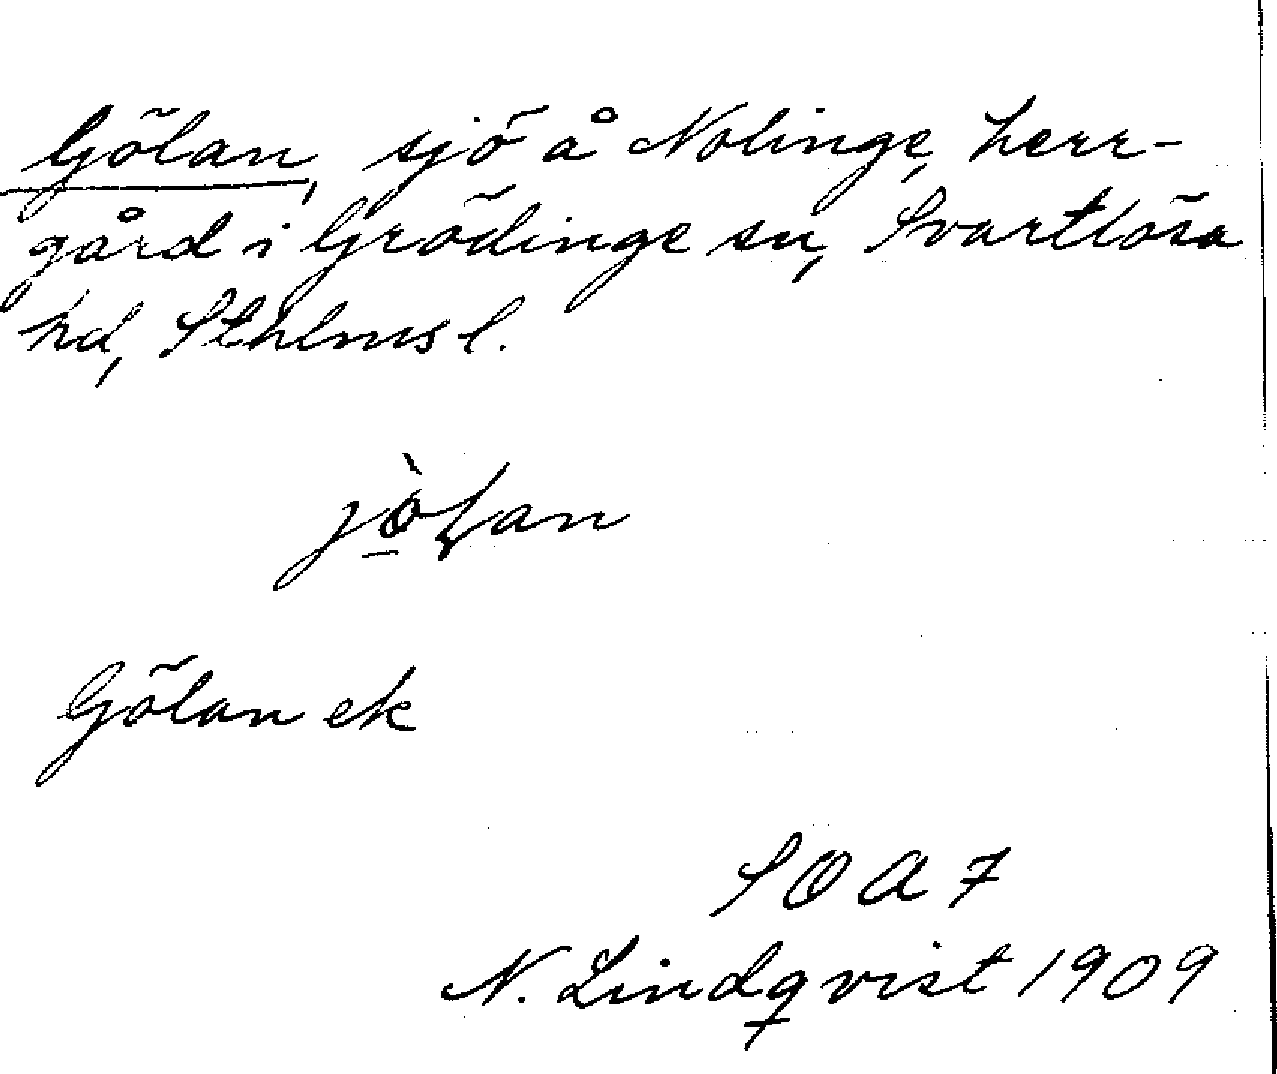 Gölan, sjö å Nolinge, herr-
gård i Grödinge sn, Svartlösa
hd, Sthlms l.
jö̀lan
Gölan ek
SOA 7
N. Lindqvist 1909